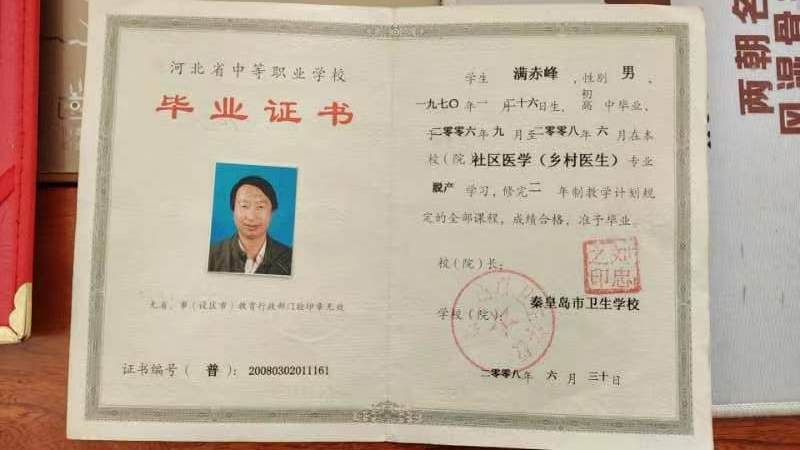 河北省中等职业学校
毕业证书
无省、市（设区市）教育行政部门验印章无效
证书编号（普）：20080302011161
学生 满赤峰，性别 男，
一九七〇年一月二十六日生，初高中毕业，
于二〇〇六年九月至二〇〇八年六月在本
校（院 社区医学（乡村医生）专业
脱产学习，修完二年制教学计划规
定的全部课程，成绩合格，准予毕业。
校（院）长：
之印
忠
学校（院）：秦皇岛市卫生学校
二〇〇八年六月三十日
两朝名
风湿骨